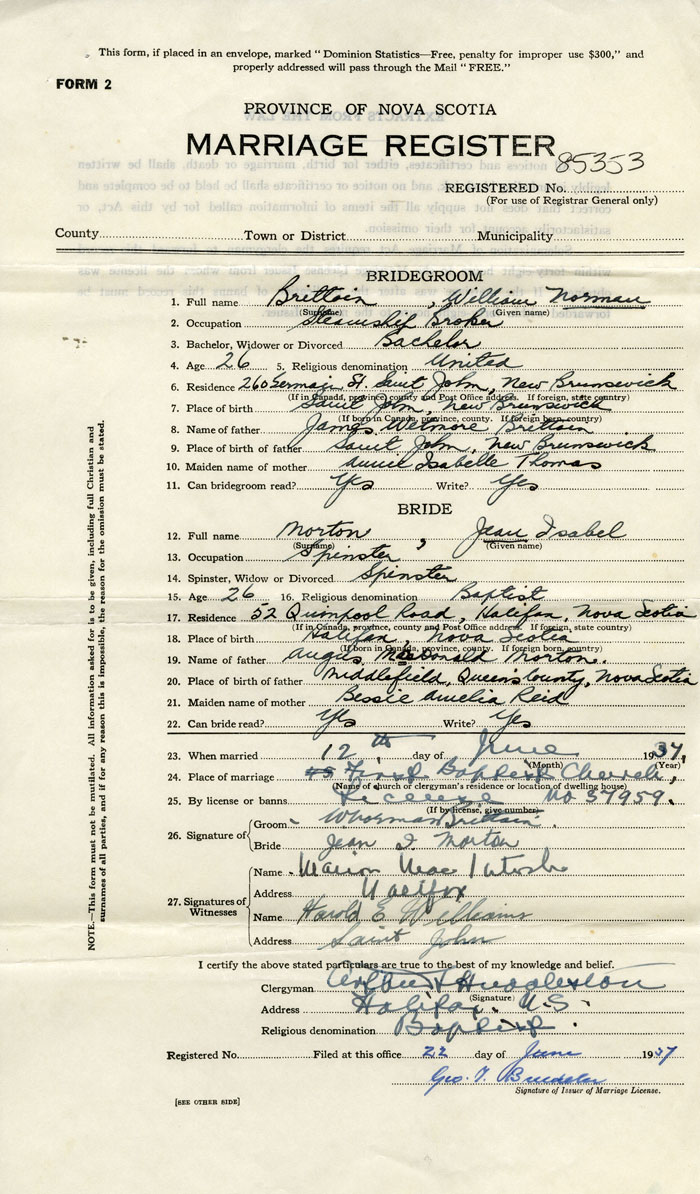 This form, if placed in an envelope, marked "Dominion Statistics—Free, penalty for improper use $300," and
properly addressed will pass through the Mail "FREE."
FORM 2
PROVINCE OF NOVA SCOTIA
MARRIAGE REGISTER
85353
REGISTERED No.
(For use of Registrar General only)
County Town or District Municipality
BRIDEGROOM
1. Full name Brittain, William Norman
(Surname) (Given name)
2. Occupation Steamship Broker
3. Bachelor, Widower or Divorced Bachelor
4. Age 26 5. Religious denomination United
6. Residence 260 Germain St. Saint John, New Brunswick
(If in Canada, province, county and Post Office address. If foreign, state country)
7. Place of birth Saint John, New Brunswick
(If born in Canada, province, county. If foreign born, country)
8. Name of father James Wetmore Brittain
9. Place of birth of father Saint John, New Brunswick
10. Maiden name of mother Annie Isabelle Thomas
11. Can bridegroom read? Yes Write? Yes
BRIDE
12. Full name Morton, Jean Isabel
(Surname) (Given name)
13. Occupation Spinster
14. Spinster, Widow or Divorced Spinster
15. Age 26 16. Religious denomination Baptist
17. Residence 52 Quinpool Road, Halifax, Nova Scotia
(If in Canada, province, county and Post Office address. If foreign, state country)
18. Place of birth Halifax, Nova Scotia
(If born in Canada, province, county. If foreign born, country)
19. Name of father Angus MacDonald Morton.
20. Place of birth of father Middlefield, Queens County, Nova Scotia
21. Maiden name of mother Bessie Amelia Reid
22. Can bride read? Yes Write? Yes
23. When married 12th day of June 1937,
(Month) (Year)
24. Place of marriage First Baptist Church,
(Name of church or clergyman's residence or location of dwelling house)
25. By license or banns License No 37959.
(If by license, give number)
26. Signature of
Groom W Norman Brittain.
Bride Jean I. Morton
27. Signatures of Witnesses
Name Marion MacIntosh
Address Halifax
Name Harold E Williams
Address Saint John
I certify the above stated particulars are true to the best of my knowledge and belief.
Clergyman Huggleston
(Signature)
Address Halifax. N.S.
Religious denomination Baptist.
Registered No. Filed at this office 22 day of June 1937
Geo. T.
Signature of Issuer of Marriage License.
[SEE OTHER SIDE]
NOTE.—This form must not be mutilated. All information asked for is to be given, including full Christian and
surnames of all parties, and if for any reason this is impossible, the reason for the omission must be stated.